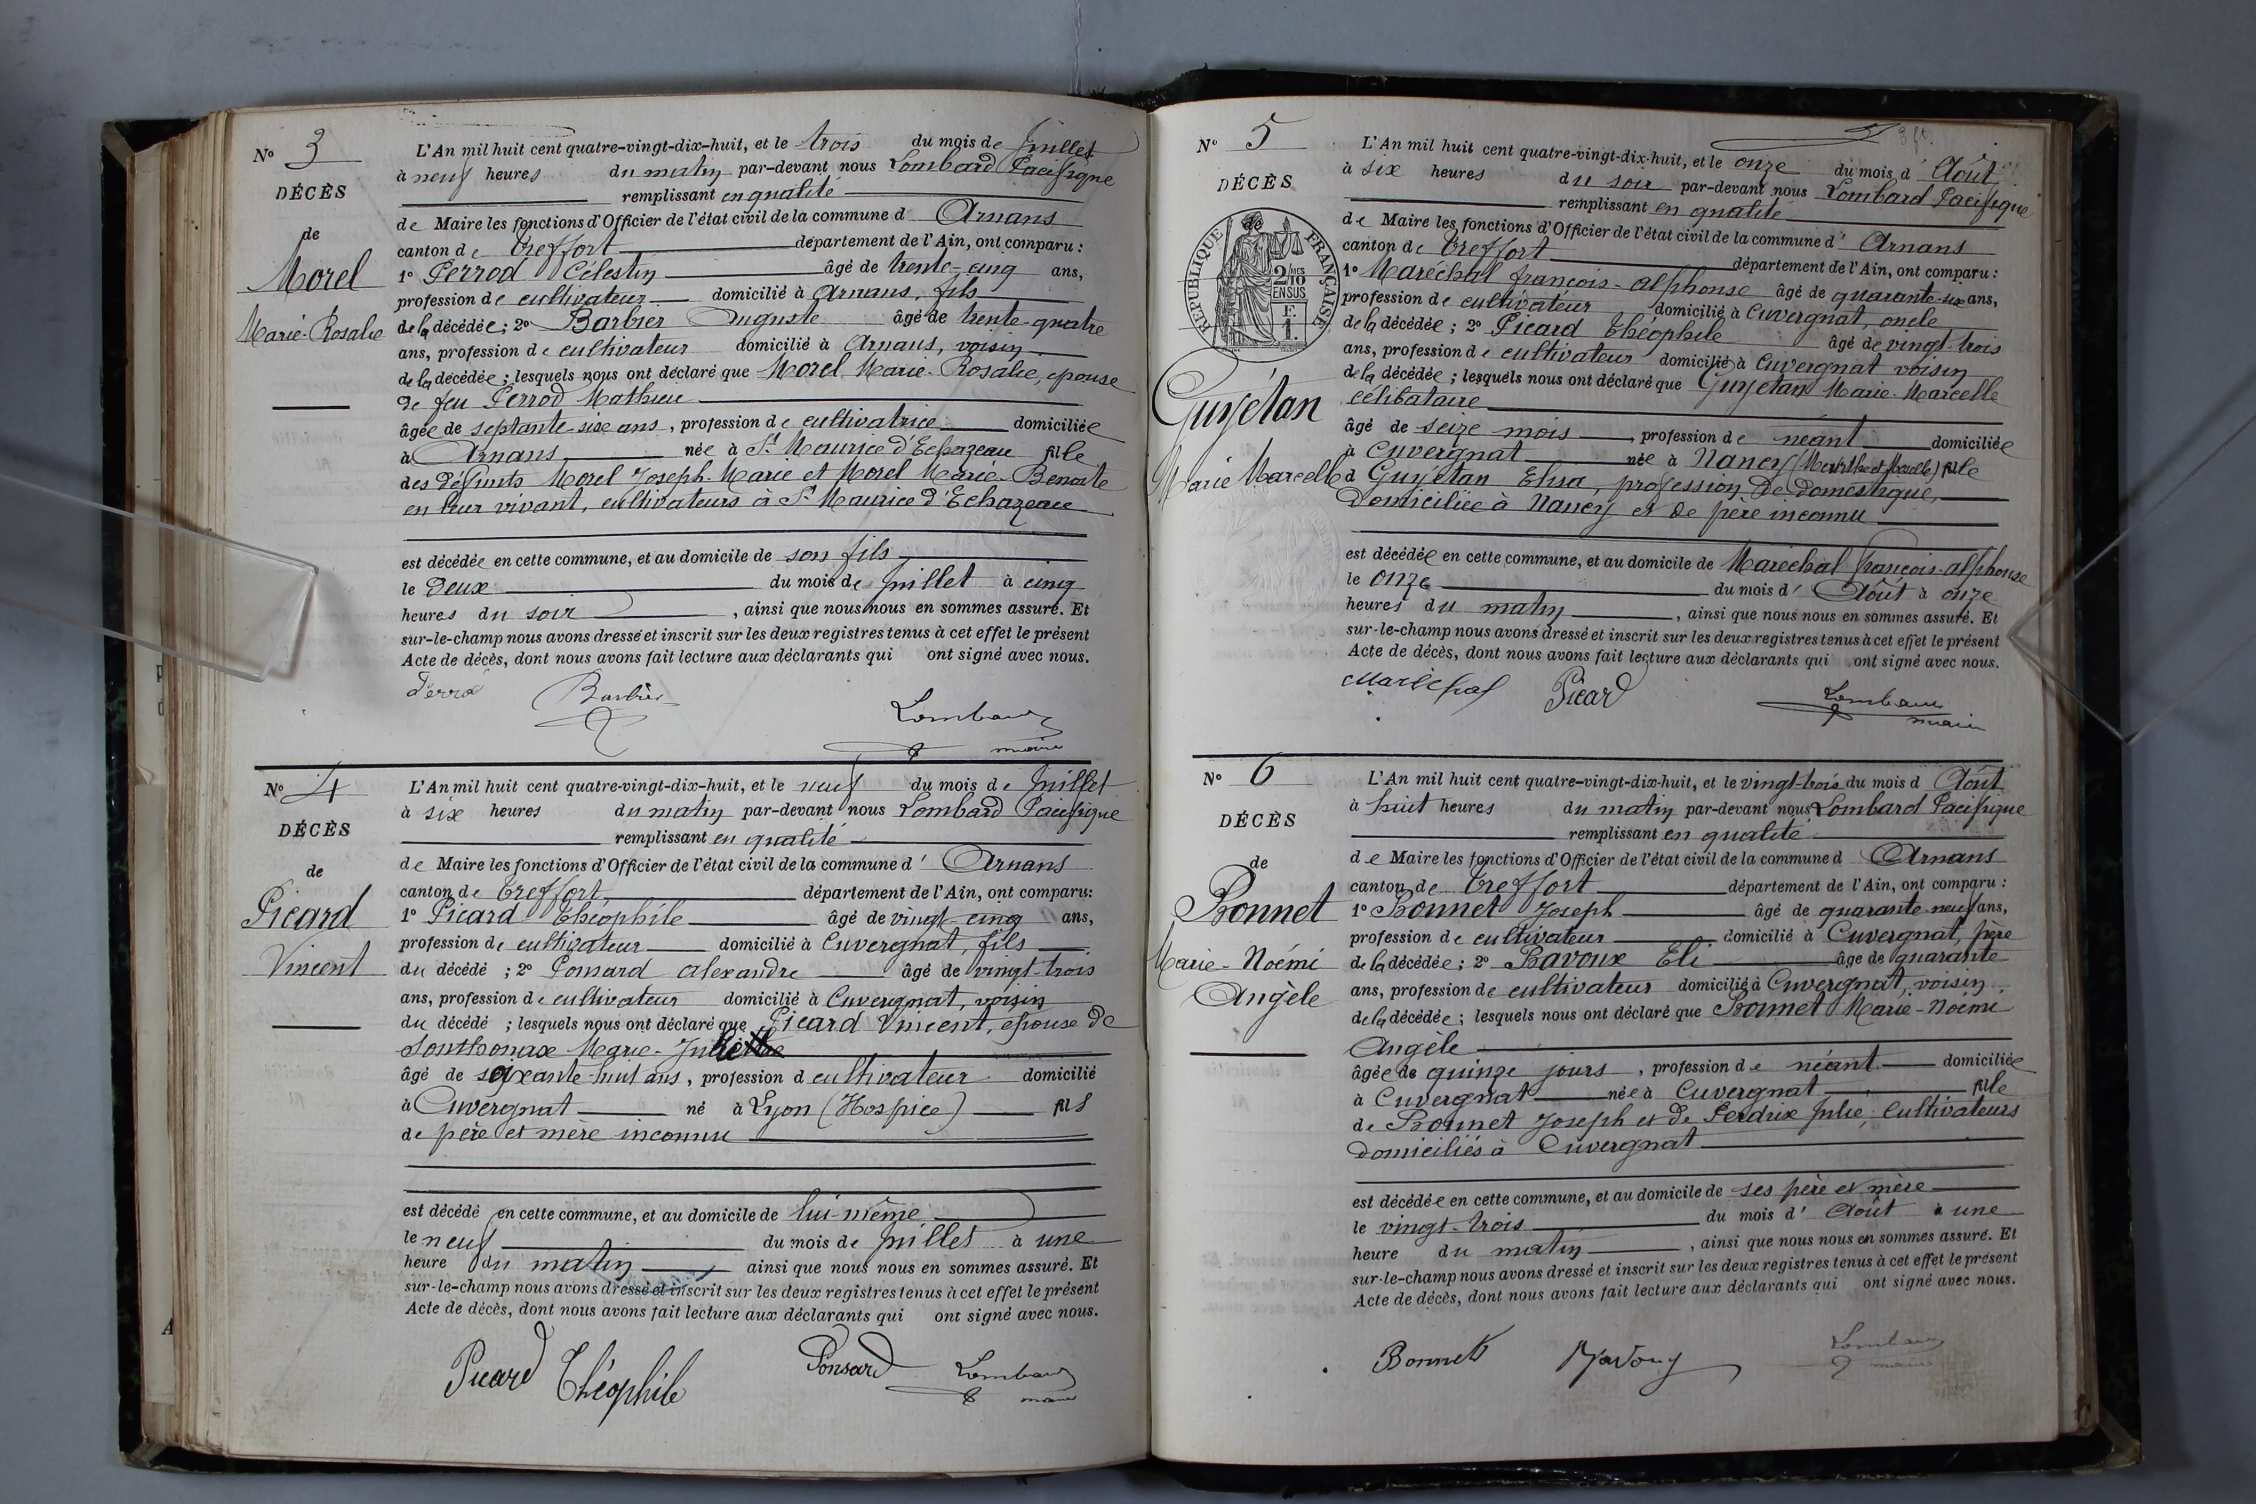 N° 3
DÉCÈS
de
Morel
Marie-Rosalie
L'An mil huit cent quatre-vingt-dix-huit, et le trois du mois de Juillet
à neuf heures du matin par-devant nous Lombard Pacifique
remplissant en qualité
de Maire les fonctions d'Officier de l'état civil de la commune d Arnans
canton de Treffort département de l'Ain, ont comparu :
1° Perrod Célestin âgé de trente-cinq ans,
profession de cultivateur domicilié à Arnans, fils
de la décédée ; 2° Barbier Auguste âgé de trente-quatre
ans, profession de cultivateur domicilié à Arnans, voisin
de la décédée ; lesquels nous ont déclaré que Morel Marie-Rosalie, épouse
de feu Perrod Mathieu
âgée de septante-six ans, profession de cultivatrice domiciliée
à Arnans née à St Maurice d'Echazeau fille
des défunts Morel Joseph-Marie et Morel Marie-Benoite
en leur vivant, cultivateurs à St Maurice d'Echazeau
est décédée en cette commune, et au domicile de son fils
le deux du mois de Juillet à cinq
heures du soir, ainsi que nous nous en sommes assuré. Et
sur-le-champ nous avons dressé et inscrit sur les deux registres tenus à cet effet le présent
Acte de décès, dont nous avons fait lecture aux déclarants qui ont signé avec nous.
Perrod Barbier Lombard
maire
N° 4
DÉCÈS
de
Picard
Vincent
L'An mil huit cent quatre-vingt-dix-huit, et le neuf du mois de Juillet
à six heures du matin par-devant nous Lombard Pacifique
remplissant en qualité
de Maire les fonctions d'Officier de l'état civil de la commune d' Arnans
canton de Treffort département de l'Ain, ont comparu :
1° Picard Théophile âgé de vingt-cinq ans,
profession de cultivateur domicilié à Cuvergnat, fils
du décédé ; 2° Ponsard Alexandre âgé de vingt-trois
ans, profession de cultivateur domicilié à Cuvergnat, voisin
du décédé ; lesquels nous ont déclaré que Picard Vincent, épouse de
Sonthonax Marie-Juliette
âgé de soixante-huit ans, profession d cultivateur domicilié
à Cuvergnat né à Lyon (Hospice) fils
de père et mère inconnu
est décédé en cette commune, et au domicile de lui-même
le neuf du mois de Juillet à une
heure du matin ainsi que nous nous en sommes assuré. Et
sur-le-champ nous avons dressé et inscrit sur les deux registres tenus à cet effet le présent
Acte de décès, dont nous avons fait lecture aux déclarants qui ont signé avec nous.
Picard Théophile Ponsard Lombard
maire
N° 5
DÉCÈS
RÉPUBLIQUE FRANÇAISE
2/10
EN SUS
F.
1.
Guyétan
Marie Marcelle
L'An mil huit cent quatre-vingt-dix-huit, et le onze du mois d' Août
à six heures du soir par-devant nous Lombard Pacifique
remplissant en qualité
de Maire les fonctions d'Officier de l'état civil de la commune d' Arnans
canton de Treffort département de l'Ain, ont comparu :
1° Maréchal françois-alphonse âgé de quarante-six ans,
profession de cultivateur domicilié à Cuvergnat, oncle
de la décédée ; 2° Picard Théophile âgé de vingt-trois
ans, profession de cultivateur domicilié à Cuvergnat voisin
de la décédée ; lesquels nous ont déclaré que Guyétan Marie-Marcelle
célibataire
âgé de seize mois, profession de néant domiciliée
à Cuvergnat née à Nancy (Meurthe et Moselle) fille
d Guyétan Elisa, profession de domestique,
domiciliée à Nancy et de père inconnu
est décédée en cette commune, et au domicile de Maréchal françois-alphonse
le onze du mois d' Août à onze
heures du matin, ainsi que nous nous en sommes assuré. Et
sur-le-champ nous avons dressé et inscrit sur les deux registres tenus à cet effet le présent
Acte de décès, dont nous avons fait lecture aux déclarants qui ont signé avec nous.
Maréchal Picard Lombard
maire
N° 6
DÉCÈS
de
Bonnet
Marie-Noémi
Angèle
L'An mil huit cent quatre-vingt-dix-huit, et le vingt-trois du mois d Août
à huit heures du matin par-devant nous Lombard Pacifique
remplissant en qualité
de Maire les fonctions d'Officier de l'état civil de la commune d Arnans
canton de Treffort département de l'Ain, ont comparu :
1° Bonnet Joseph âgé de quarante-neuf ans,
profession de cultivateur domicilié à Cuvergnat, père
de la décédée ; 2° Bavoux Eli âgé de quarante
ans, profession de cultivateur domicilié à Cuvergnat, voisin
de la décédée ; lesquels nous ont déclaré que Bonnet Marie-Noémi
Angèle
âgée de quinze jours, profession de néant domiciliée
à Cuvergnat née à Cuvergnat fille
de Bonnet Joseph et de Perdrix Julie, Cultivateurs
domiciliés à Cuvergnat
est décédée en cette commune, et au domicile de ses père et mère
le vingt-trois du mois d' Août à une
heure du matin, ainsi que nous nous en sommes assuré. Et
sur-le-champ nous avons dressé et inscrit sur les deux registres tenus à cet effet le présent
Acte de décès, dont nous avons fait lecture aux déclarants qui ont signé avec nous.
Bonnet Bavoux Lombard
maire